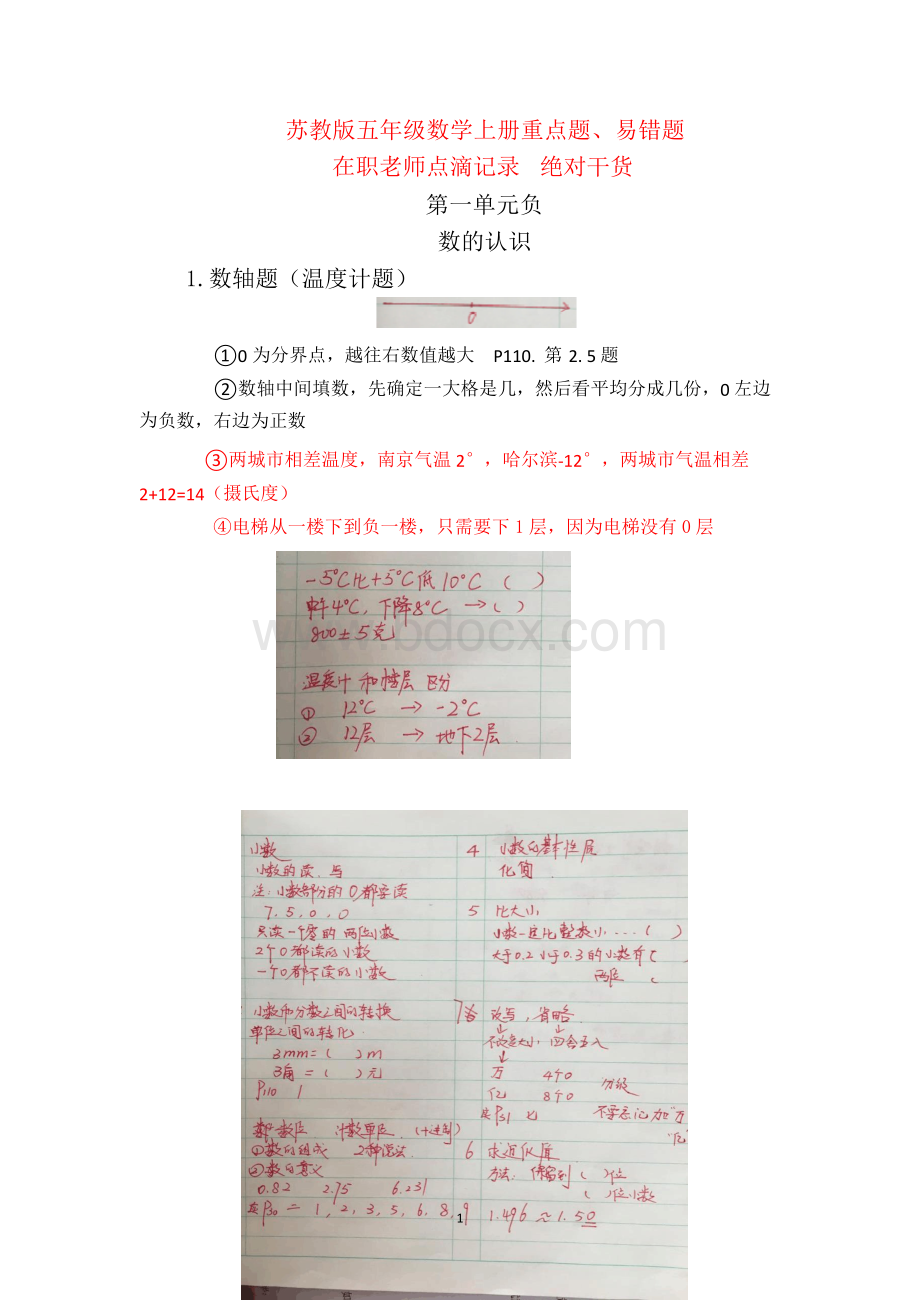 苏教版五年级数学上册重点题、易错题
在职老师点滴记录 绝对干货
第一单元负
数的认识
1.数轴题（温度计题）
0
①0为分界点，越往右数值越大 P110. 第2.5题
②数轴中间填数，先确定一大格是几，然后看平均分成几份，0左边
为负数，右边为正数
③两城市相差温度，南京气温2°，哈尔滨-12°，两城市气温相差
2+12=14（摄氏度）
④电梯从一楼下到负一楼，只需要下1层，因为电梯没有0层
-5°C比+5°C低10°C ( )
中午4°C，下降8°C → ( )
800±5克
www.bdocx.com
温度计和楼层 区分
① 12°C → -2°C
② 12层 → 地下2层
小数
小数的读、写
注：小数部分的0都要读
7.5.0.0
只读一个零的两位小数
2个0都读的小数
一个0都不读的小数
小数和分数之间的转换
单位之间的转化
3mm=( )m
3角=( )元
P110 1
数位 计数单位 (十进制)
①数的组成 2种说法
②数的意义
0.82 2.75 6.231
P30 = 1, 2, 3, 5, 6. 8, 9
4 小数的基本性质
化简
5 比大小
小数一定比整数小...( )
大于0.2小于0.3的小数有(
两位 (
改写，省略
↓ ↓
不改变大小 四舍五入
↓
万 4个0 分级
亿 8个0
P31 七 不要忘记加"万"
"亿"
6 求近似值
方法：保留到( )位
( )位小数
1.496≈1.50
1